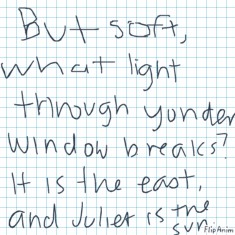 But soft,
what light
through yonder
window breaks?
It is the east,
and Juliet is the
sun.
FlipAnim